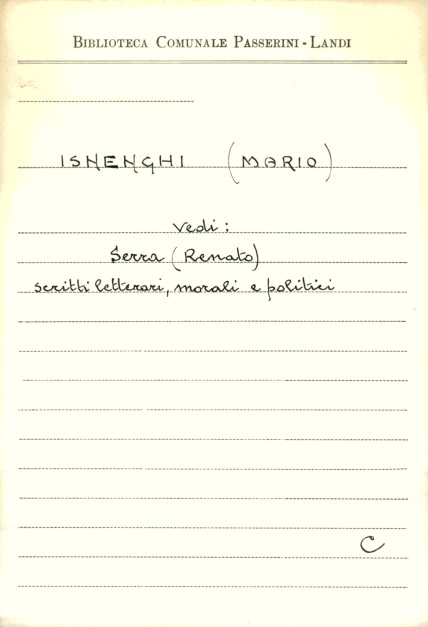 BIBLIOTECA COMUNALE PASSERINI - LANDI
ISNENGHI (MARIO)
Vedi:
Serra (Renato)
scritti letterari, morali e politici
C